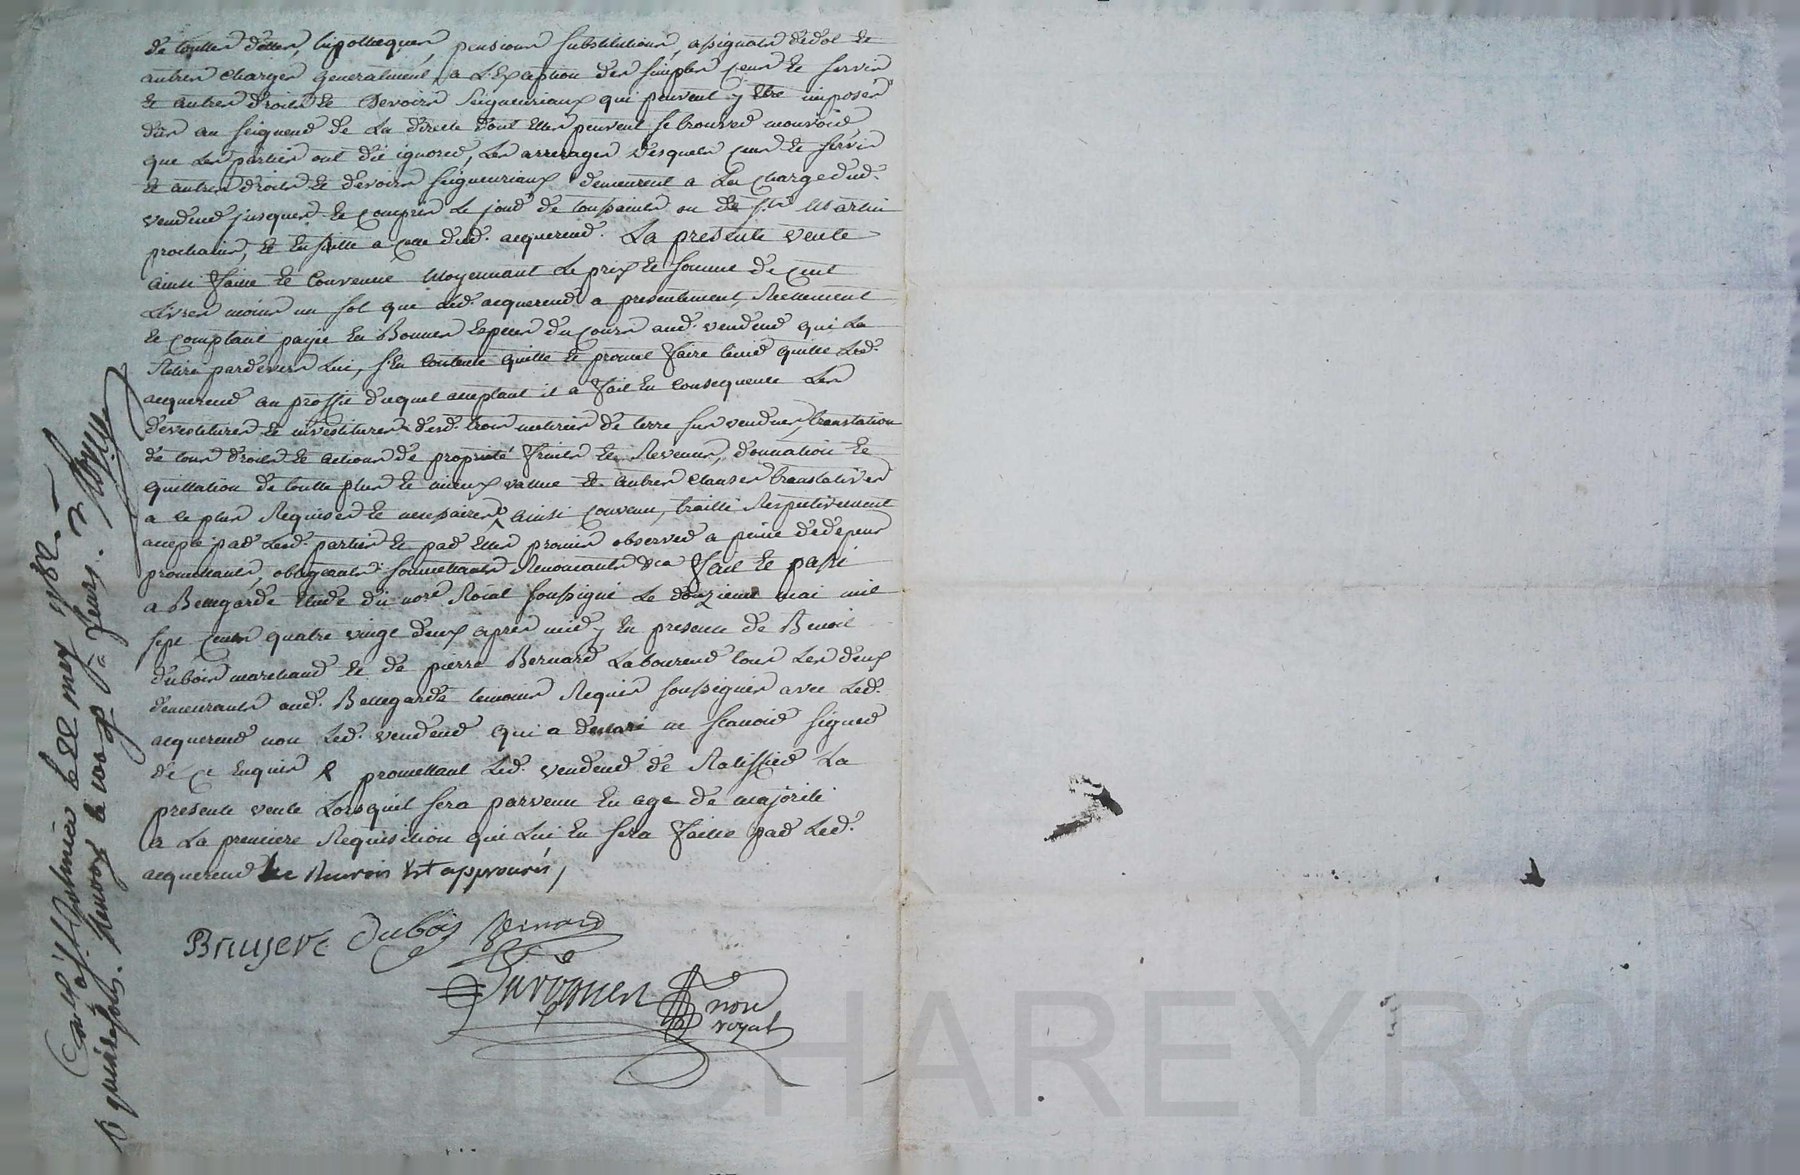 de touttes dettes, hipotheques, pensions substitutions, assignats de dot et
autres charges generalement, a L'exception des simples cens et servis
et autres droits et devoirs seigneuriaux qui peuvent y être imposés
dus au seigneur de La directe dont elles peuvent se trouver mouvoir
que Les parties ont dit ignorer, Les arrerages desquels cens et servis
et autres droits et devoirs seigneuriaux demeurent a La charge dud.
vendeur jusques et compris Le jour de toussaints ou de st. Martin
prochain, et En suitte a celle dud. acquereur. La presente vente
ainsi faitte et Convenue Moyennant Le prix et somme de cent
Livres moins un sol que Led. acquereur a presentement, Reellement
et comptant payé En Bonnes Especes du cours aud. vendeur qui La
Retiré pardevers Lui, s'En Contente quitte et promet faire tenir quitte Led.
acquereur au proffit duquel acceptant il a fait En Consequence Les
devestitures et investitures desd. trois meterées de terre sus vendues, translation
de tous droits et actions de propriété fruits et Revenus, donnation et
quittation de toutte plus et mieux vallue et autres clauses translatives
a ce plus Requises et necessaires ainsi Convenu, traitté Respectivement
accepté par Lesd. parties et par Elles promis observer a peine de depens
promettants, obligeants soumettants Renonceants &a fait et passé
a Bellegarde Etude du nore Roial soussigné Le douzieme mai mil
sept cens quatre vingt deux après midy En presence de Benoit
dubois marchand et de pierre Bernard Laboureur tous Les deux
demeurants aud. Bellegarde temoins Requis soussignés avec Led.
acquereur non Led. vendeur qui a declaré ne scavoir signer
de ce Enquis & promettant Led. vendeur de Ratiffier La
presente vente Lorsquil sera parvenu En age de majorité
a La premiere Requisition qui Lui En sera faitte par Led.
acquereur Le Renvois Est approuvés,
Bruyere Dubois Bernard
nore
royal
Conlé a st. Galmier le 22 may 1782
CHAREYRON